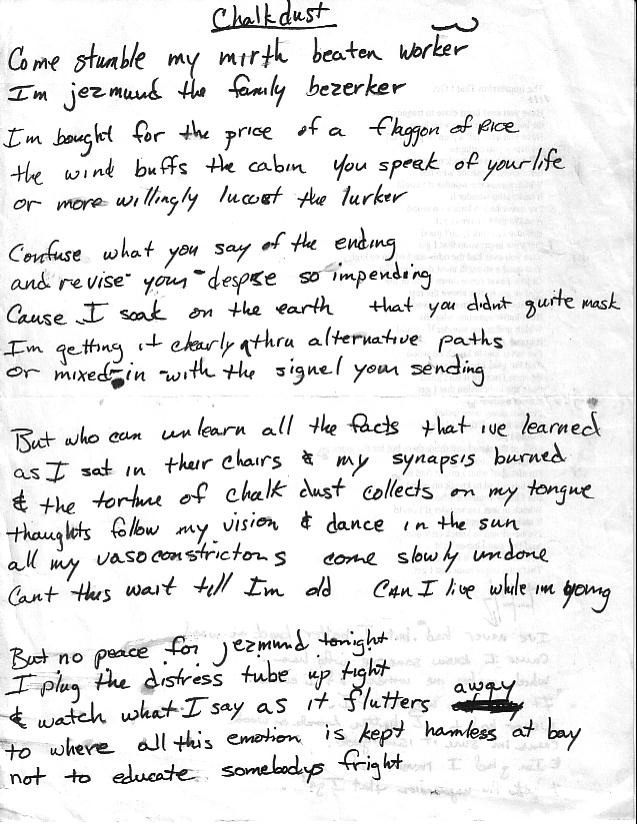 Chalkdust
Come stumble my mirth beaten worker
I'm jezmund the family bezerker
I'm bought for the price of a flaggon of Rice
the wind buffs the cabin you speak of your life
or more willingly lucost the lurker
Confuse what you say of the ending
and revise your despise so impending
Cause I soak on the earth that you didnt quite mask
I'm getting it clearly thru alternative paths
or mixed in with the signel your sending
But who can unlearn all the facts that ive learned
as I sat in their chairs & my synapsis burned
& the torture of chalk dust collects on my tongue
thoughts follow my vision & dance in the sun
all my vasoconstrictors come slowly undone
Cant this wait till I'm old CAn I live while im young
But no peace for jezmund tonight
I plug the distress tube up tight
& watch what I say as it flutters away
to where all this emotion is kept harmless at bay
not to educate somebodys fright